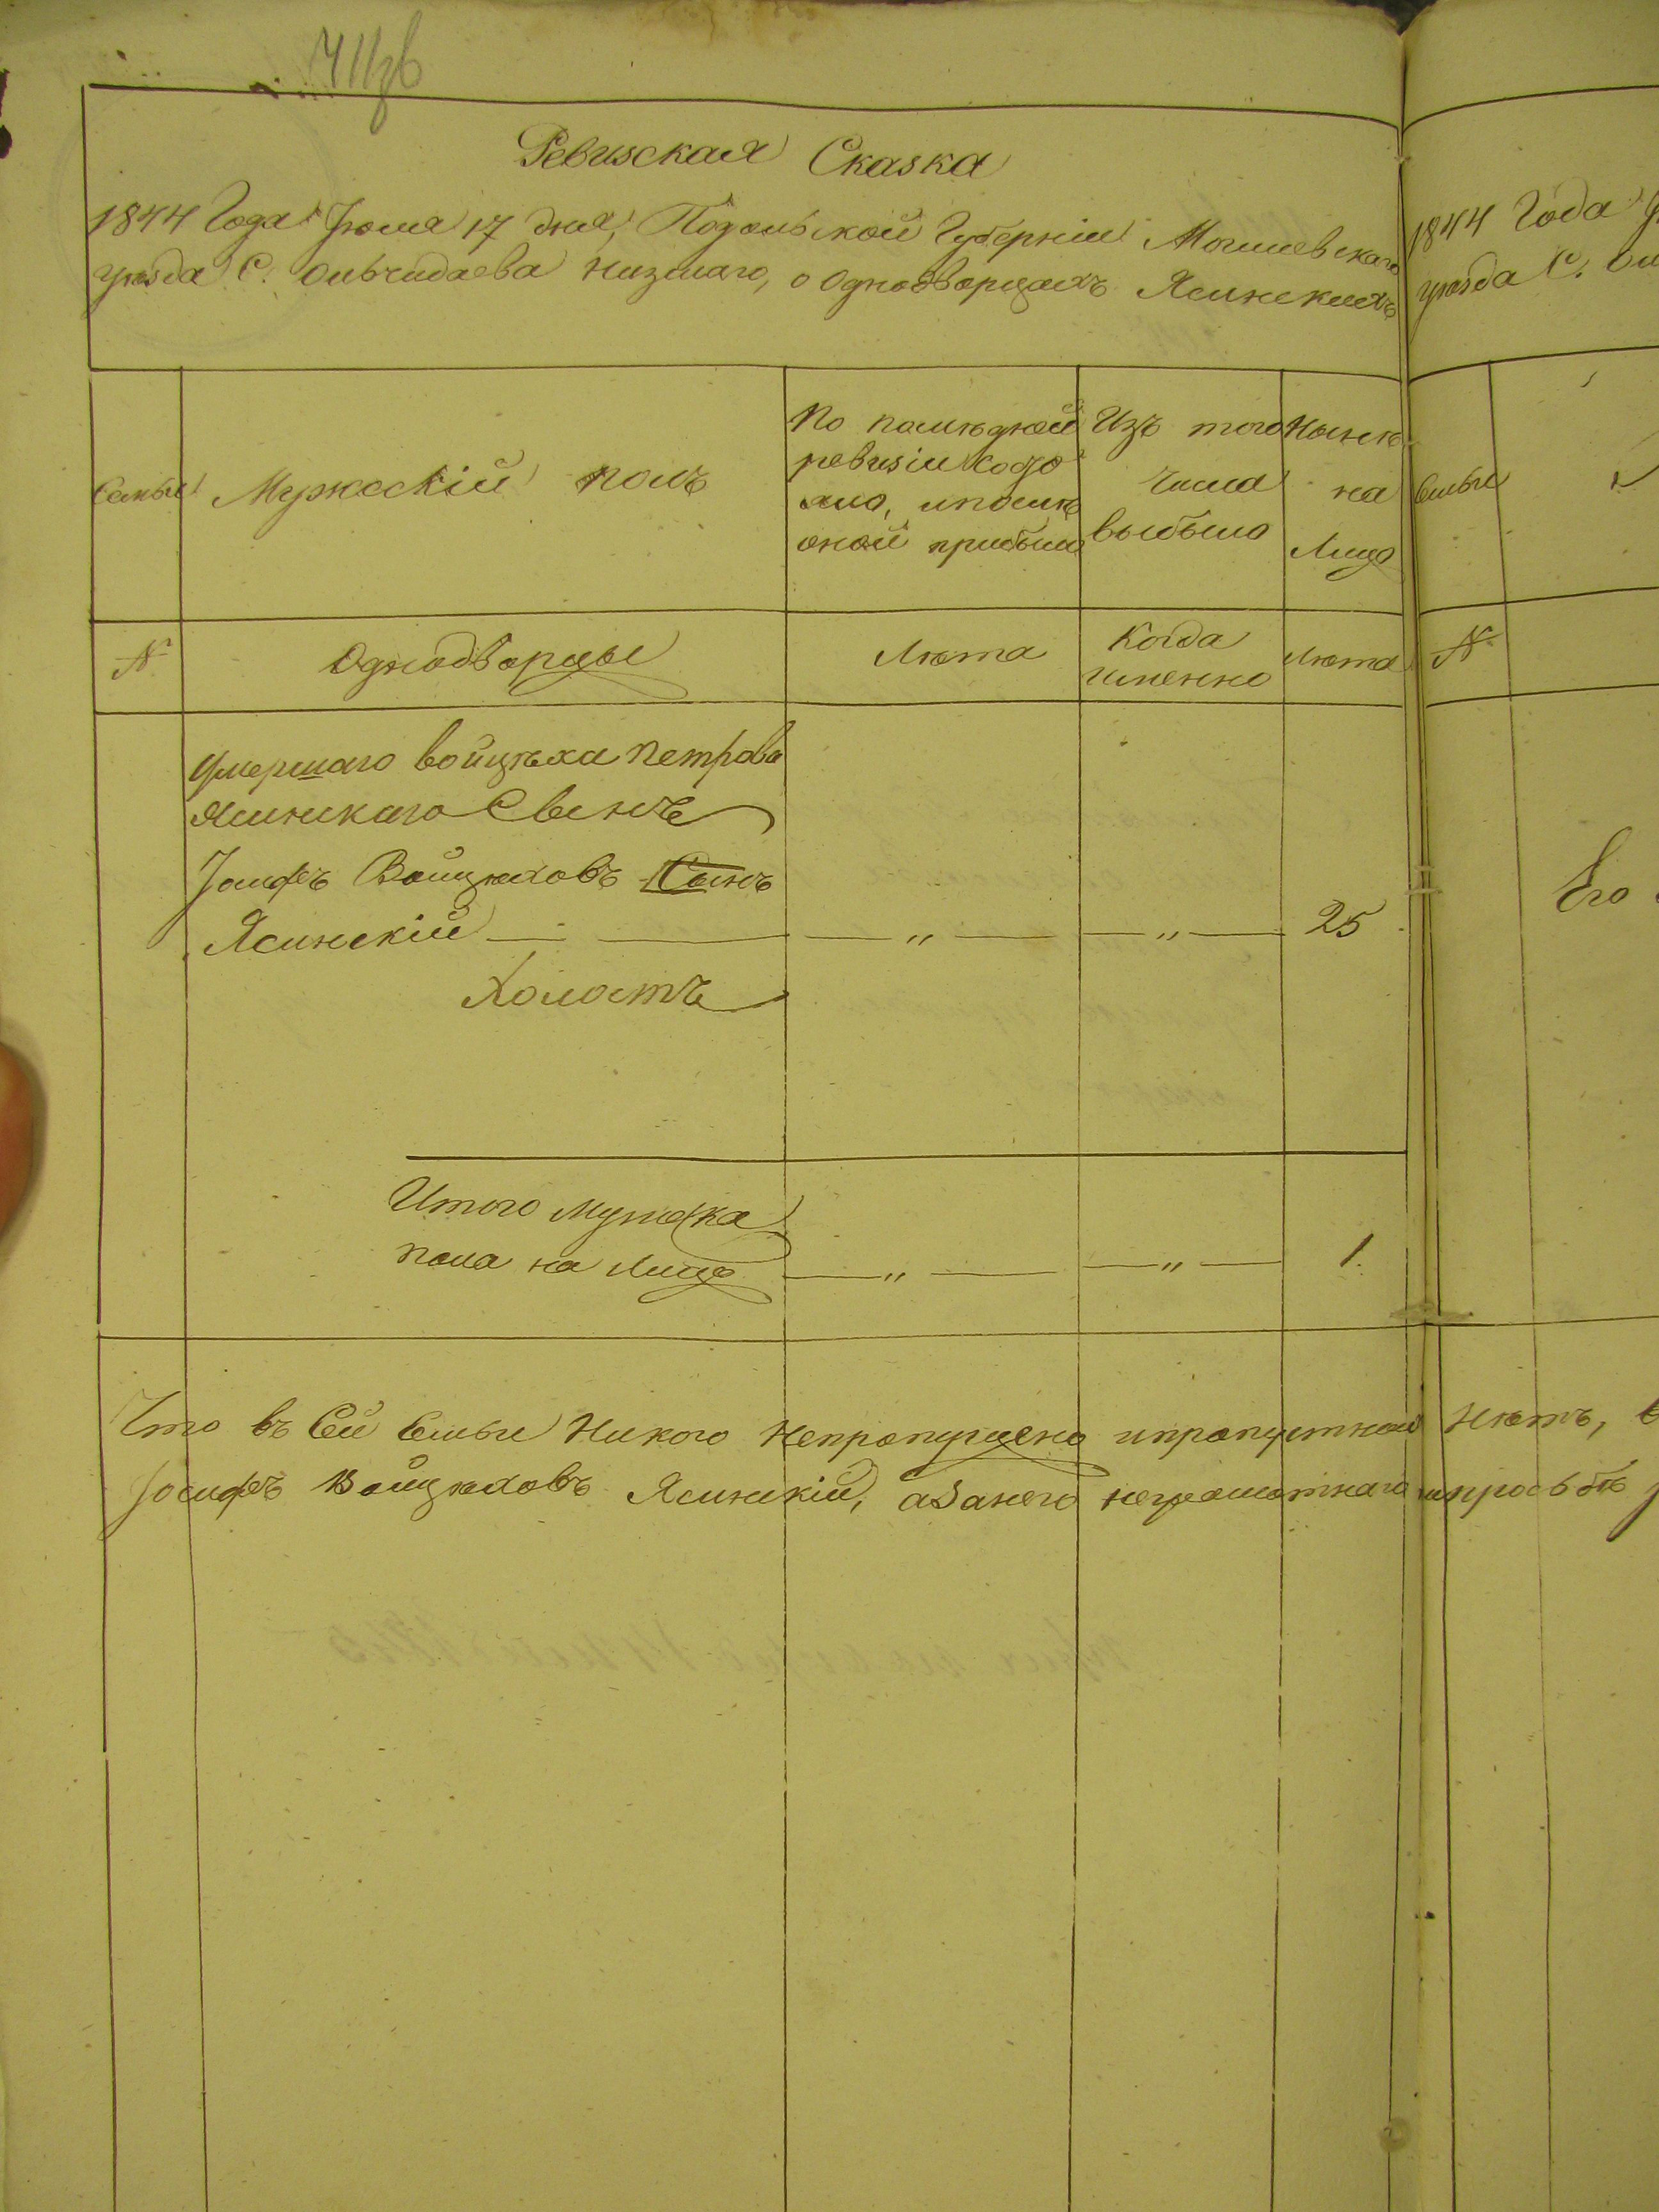 Ревизская Сказка
1844 Года Июля 17 дня, Подольской Губерніи Могилевскаго
уѣзда С. Ольчидаева низшаго, о Однодворцахъ Ясинскихъ
1844 Года
уѣзда С.
Семьи
Мужескій полъ
По послѣдней
ревизіи состо
яло, и послѣ
оной прибыло
Изъ того
числа
выбыло
Нынѣ
на
Лицо
Семьи
№
Однодворцы
Лѣта
Когда
именно
Лѣта
№
Умершаго Войцѣха Петрова
Ясинскаго Сынъ
Іосифъ Войцѣховъ Сынъ
Ясинскій — — — " — — " — 25
Холостъ
Его
Итого Мужеска
пола на Лицо — " — — " — 1.
Что въ Сей Семьи Никого непропущено ипропустнои Нѣтъ,
Іосифъ Войцѣховъ Ясинскій, азанего неграмотнаго попросьбѣ